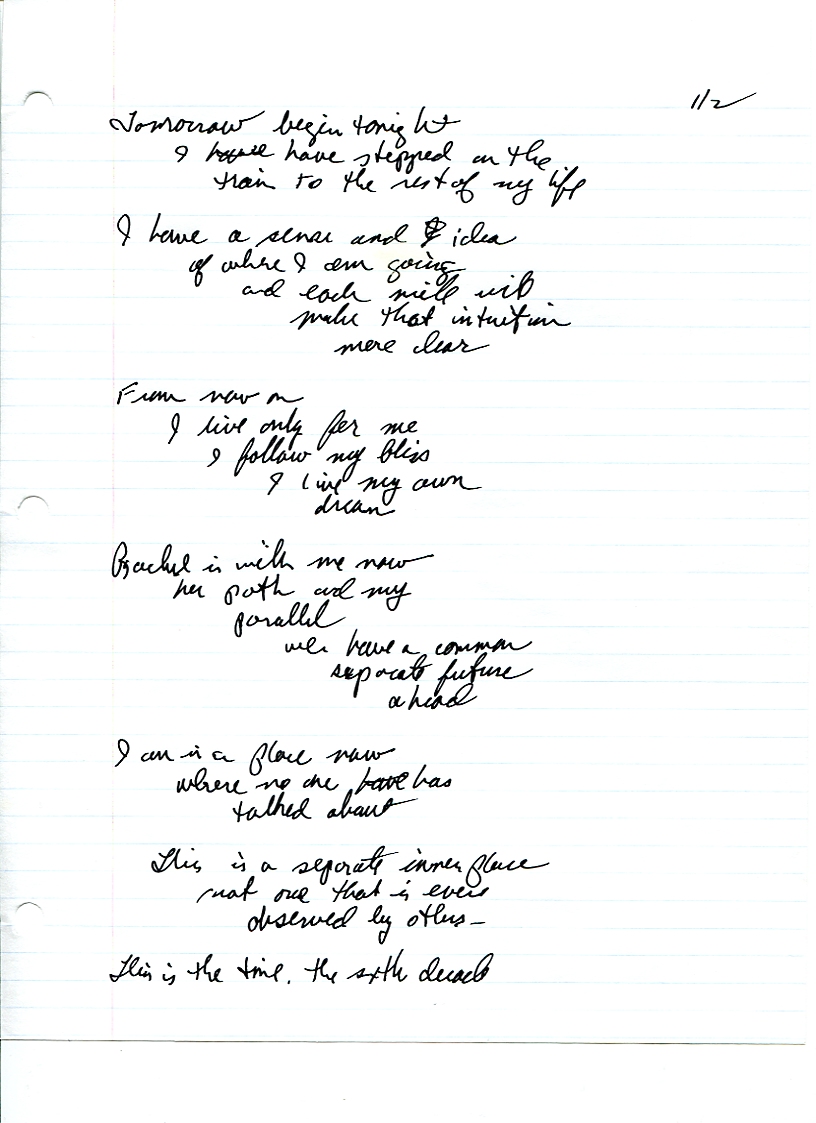 1/2
Tomorrow begin tonight
I have have stepped on the
train to the rest of my life
I have a sense and idea
of where I am going
and each mile will
make that intuition
more clear
From now on
I live only for me
I follow my bliss
I live my own
dream
Rachel is with me now
her path and my
parallel
we have a common
separate future
ahead
I am in a place now
where no one have has
talked about
This is a separate inner place
not one that is ever
observed by others—
This is the time. the sixth decade